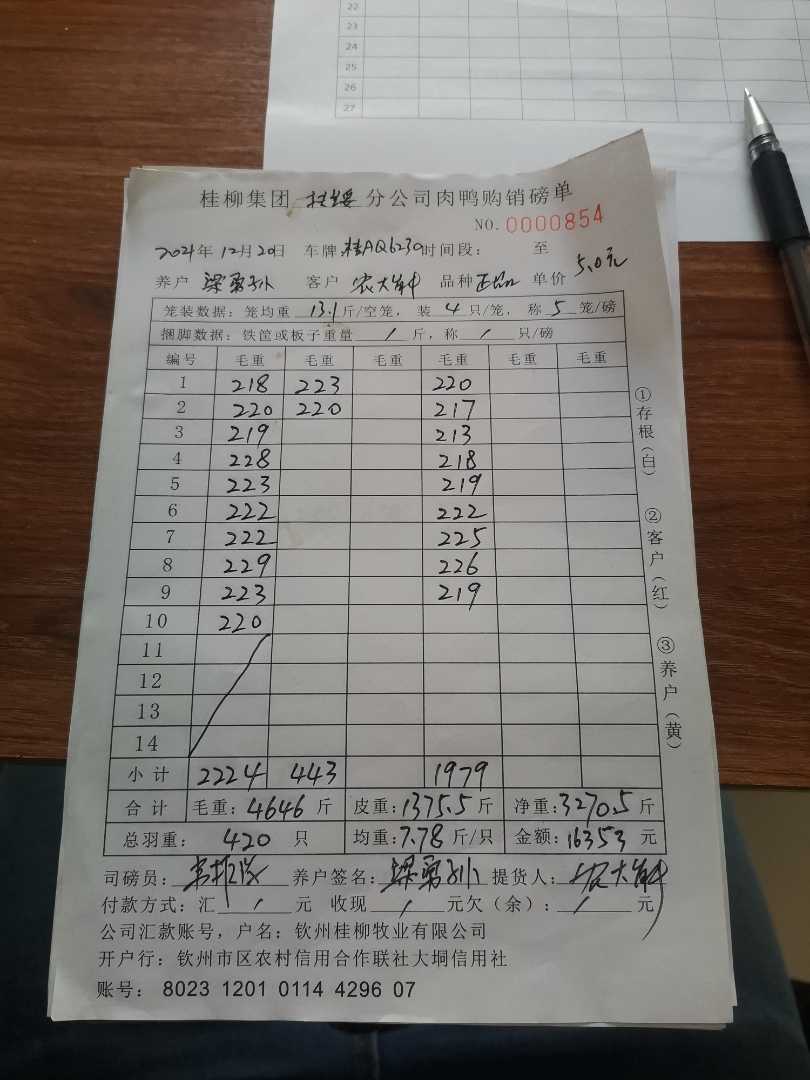 22
23
24
25
26
27
桂柳集团 扶绥 分公司肉鸭购销磅单
NO. 0000854
2021年12月20日 车牌:桂AQ6230 时间段: 至
养户 梁勇孙 客户 农大 品种 正品 单价 5.0元
笼装数据: 笼均重 13.1 斤/空笼, 装 4 只/笼, 称 5 笼/磅
捆脚数据: 铁筐或板子重量 / 斤, 称 / 只/磅
编号 毛重 毛重 毛重 毛重 毛重 毛重
1 218 223 220
2 220 220 217
3 219 213
4 228 218
5 223 219
6 222 222
7 222 225
8 229 226
9 223 219
10 220
11
12
13
14
小计 2224 443 1979
合计 毛重: 4646 斤 皮重: 1375.5 斤 净重: 3270.5 斤
总羽重: 420 只 均重: 7.78 斤/只 金额: 16353 元
司磅员: 养户签名: 梁勇孙 提货人: 农大
付款方式: 汇 / 元 收现 / 元欠(余): / 元
公司汇款账号, 户名: 钦州桂柳牧业有限公司
开户行: 钦州市区农村信用合作联社大垌信用社
账号: 8023 1201 0114 4296 07
①存根(白)
②客户(红)
③养户(黄)